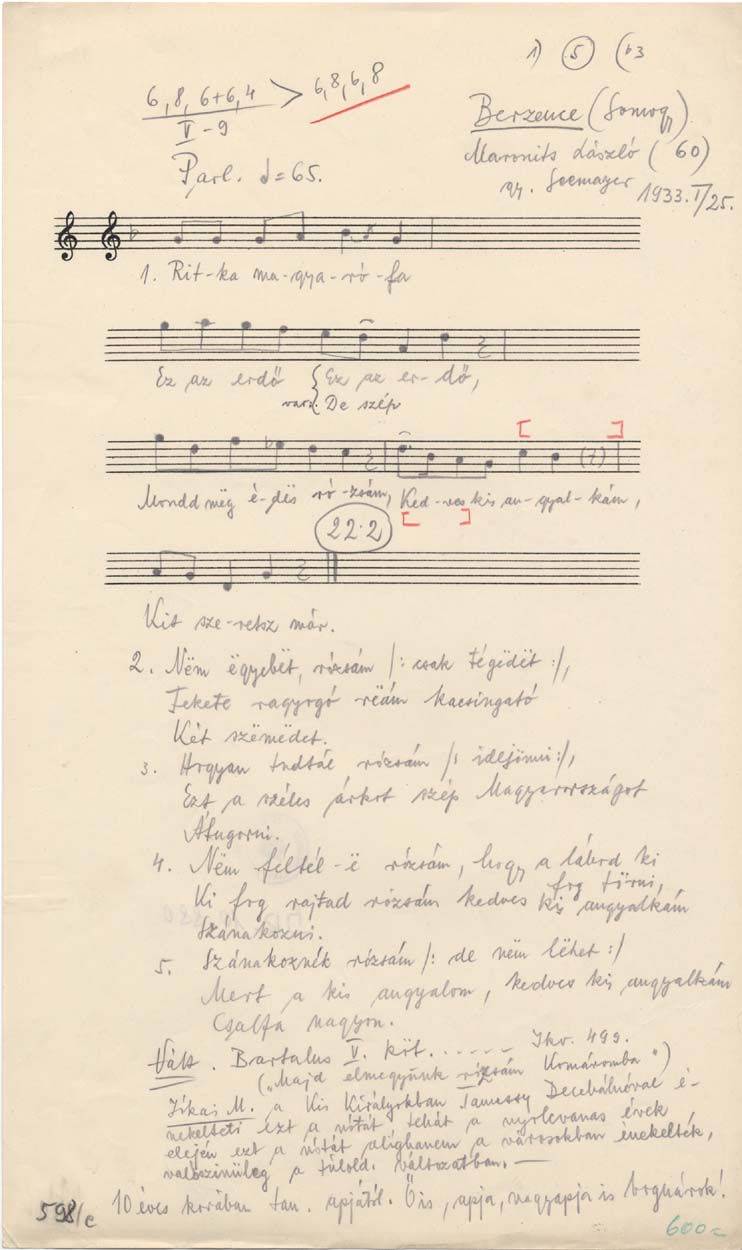 1) 5 (b3
6, 8, 6+6, 4 > 6, 8, 6, 8
V – 9
Parl. = 65.
Berzence (Somogy)
Maronits László (60)
gy. Seemayer 1933. I/25.
1. Rit-ka ma-gya-ró-fa
Ez az erdő { Ez az er-dő,
var. { De szép
Mondd mëg é-dës ró-zsám, Ked-ves kis an-gyal-kám,
22.2
Kit sze-retsz már.
2. Nëm ëgyebët, rózsám /: csak tégëdët :/,
Fekete ragyogó rëám kacsingató
Két szëmëdet.
3. Hogyan tudtál rózsám /: idejönni :/,
Ezt a széles árkot szép Magyarországot
Átugorni.
4. Nëm féltél-ë rózsám, hogy a lábod ki
fog törni,
Ki fog rajtad rózsám kedves kis angyalkám
Szánakozni.
5. Szánakoznék rózsám /: de nëm lëhet :/
Mert a kis angyalom, kedves kis angyalkám
Csalfa nagyon.
Vált. Bartalus V. köt. ..... 499.
("Majd elmegyünk rózsám Komáromba")
Jókai M. a Kis Királyokban Tanussy Decebálnéval é-
nekelteti ezt a nótát tehát a nyolcvanas évek
elején ezt a nótát alighanem a városokban énekelték,
valószinüleg a túlold. változatban. —
10 éves korában tan. apjától. Ő is, apja, nagyapja is bognárok!
598/c
600=